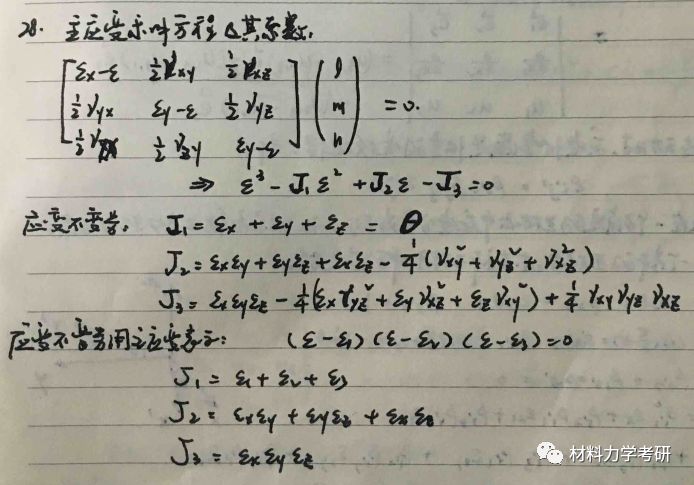 28. 主应变求叫方程及其系数.
[εx-ε ½γxy ½γxz] (l)
[½γyx εy-ε ½γyz] (m) =0.
[½γzx ½γzy εy-ε] (n)
⇒ ε³-J₁ε²+J₂ε-J₃=0
应变不变量: J₁=εx+εy+εz=θ
J₂=εxεy+εyεz+εxεz-¼(γxy²+γyz²+γxz²)
J₃=εxεyεz-¼(εxγyz²+εyγxz²+εzγxy²)+¼γxyγyzγxz
应变不变量用主应变表示: (ε-ε₁)(ε-ε₂)(ε-ε₃)=0
J₁=ε₁+ε₂+ε₃
J₂=εxεy+εyεz+εxεz
J₃=εxεyεz
材料力学考研